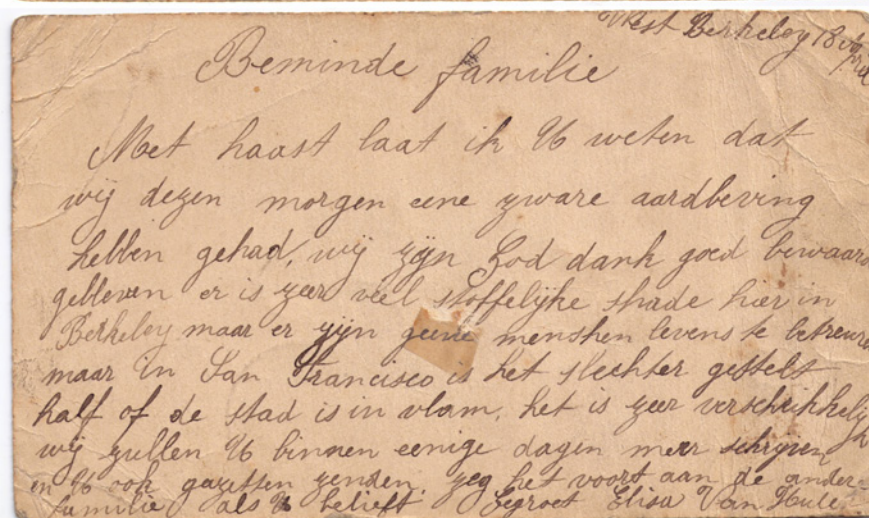 West Berkeley 18 April
Beminde familie
Met haast laat ik U weten dat
wij dezen morgen eene zware aardbeving
hebben gehad, wij zijn God dank goed bewaard
gebleven er is zeer veel stoffelijke shade hier in
Berkeley maar er zijn geene menshen levens te betreuren
maar in San Francisco is het slechter gestelt
half of de stad is in vlam, het is zeer verschrikkelijk
wij zullen U binnen eenige dagen meer schrijven
en U ook gazetten zenden. zeg het voort aan de ander
familie als U belieft. Gegroet Elisa Van Hule